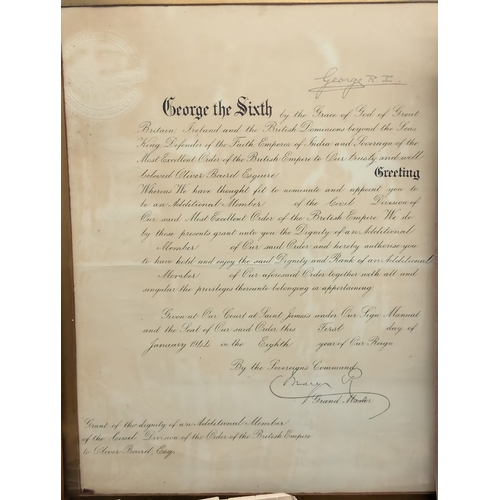 George R.I.
George the Sixth by the Grace of God of Great
Britain, Ireland and the British Dominions beyond the Seas
King, Defender of the Faith, Emperor of India and Sovereign of the
Most Excellent Order of the British Empire to Our trusty and well
beloved Oliver Baird Esquire Greeting
Whereas We have thought fit to nominate and appoint you to
be an Additional Member of the Civil Division of
Our said Most Excellent Order of the British Empire We do
by these presents grant unto you the Dignity of an Additional
Member of Our said Order and hereby authorise you
to have hold and enjoy the said Dignity and Rank of an Additional
Member of Our aforesaid Order together with all and
singular the privileges thereunto belonging or appertaining.
Given at Our Court at Saint James's under Our Sign Manual
and the Seal of Our said Order this First day of
January 1944 in the Eighth year of Our Reign.
By the Sovereign's Command.
Mary R
Grand Master
Grant of the dignity of an Additional Member
of the Civil Division of the Order of the British Empire
to Oliver Baird, Esq.